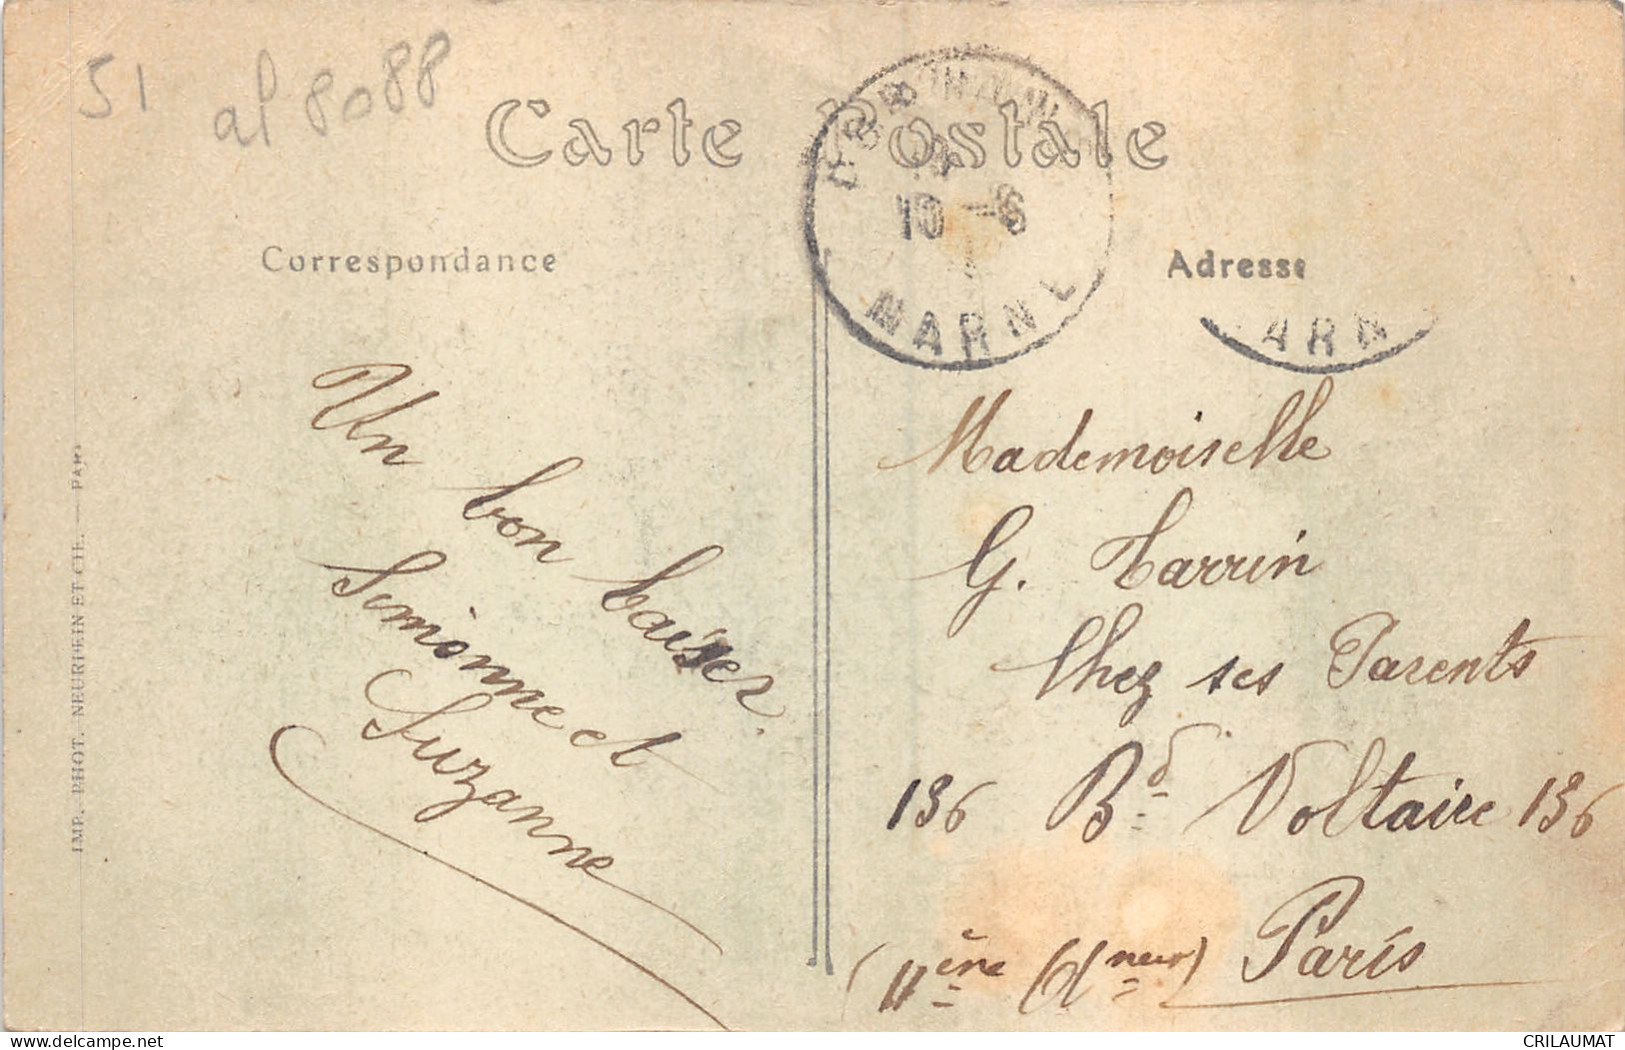 51
al 8088
Carte Postale
10 -6
MARNE
Correspondance
Adresse
ARN
Un bon baiser
Simonne et
Suzanne
Mademoiselle
G. Tarrin
Chez ses Parents
136 Bd Voltaire 136
Paris
IMP. PHOT. NEURDEIN ET CIE. — PARIS
CRILAUMAT